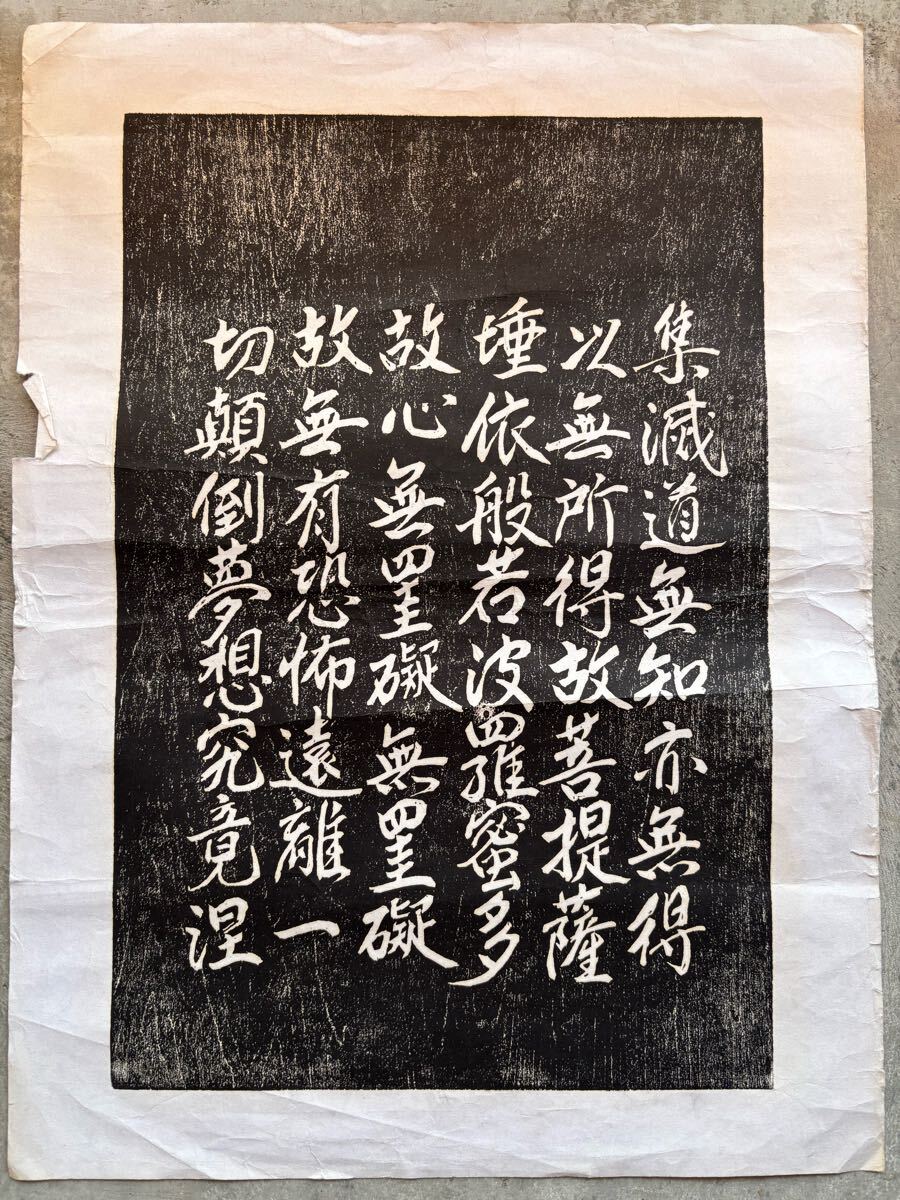 集滅道無知亦無得
以無所得故菩提薩
埵依般若波羅蜜多
故心無罣礙無罣礙
故無有恐怖遠離一
切顛倒夢想究竟涅